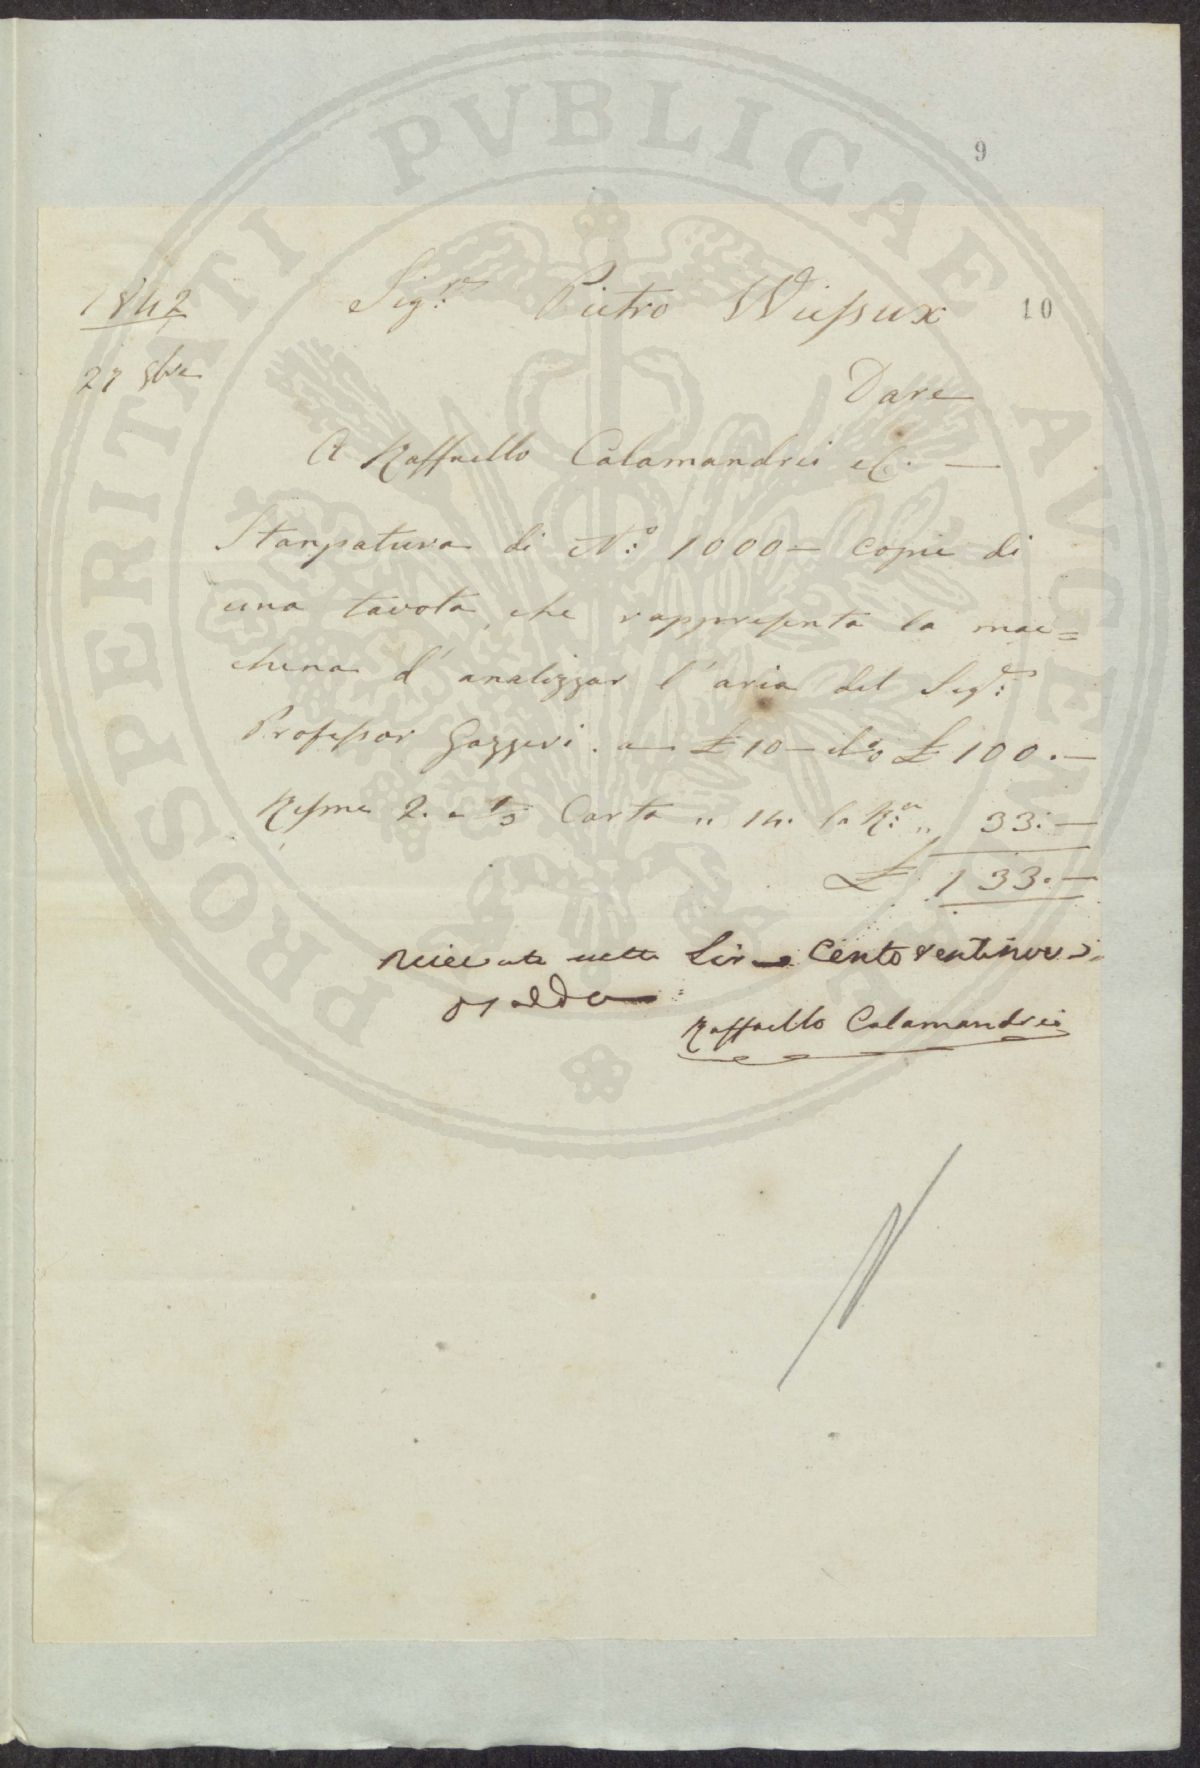 9
10
1842
27 9bre
Sig.re Pietro Wiesseux
Dare
A Raffaello Calamandrei e C. —
Stanpatura di N.o 1000 — copie di
una tavola, che rappresenta la mac=
china d'analizzar l'aria del Sig.e
Professor Gazzeri. a £ 10 — il % £ 100. —
Risme 2. e 1/3 Carta „ 14. la R.a „ 33. —
£ 133. —
Ricevute nette Lire Cento ventinove
a saldo
Raffaello Calamandrei
PROSPERITATI PVBLICAE AVGENDAE